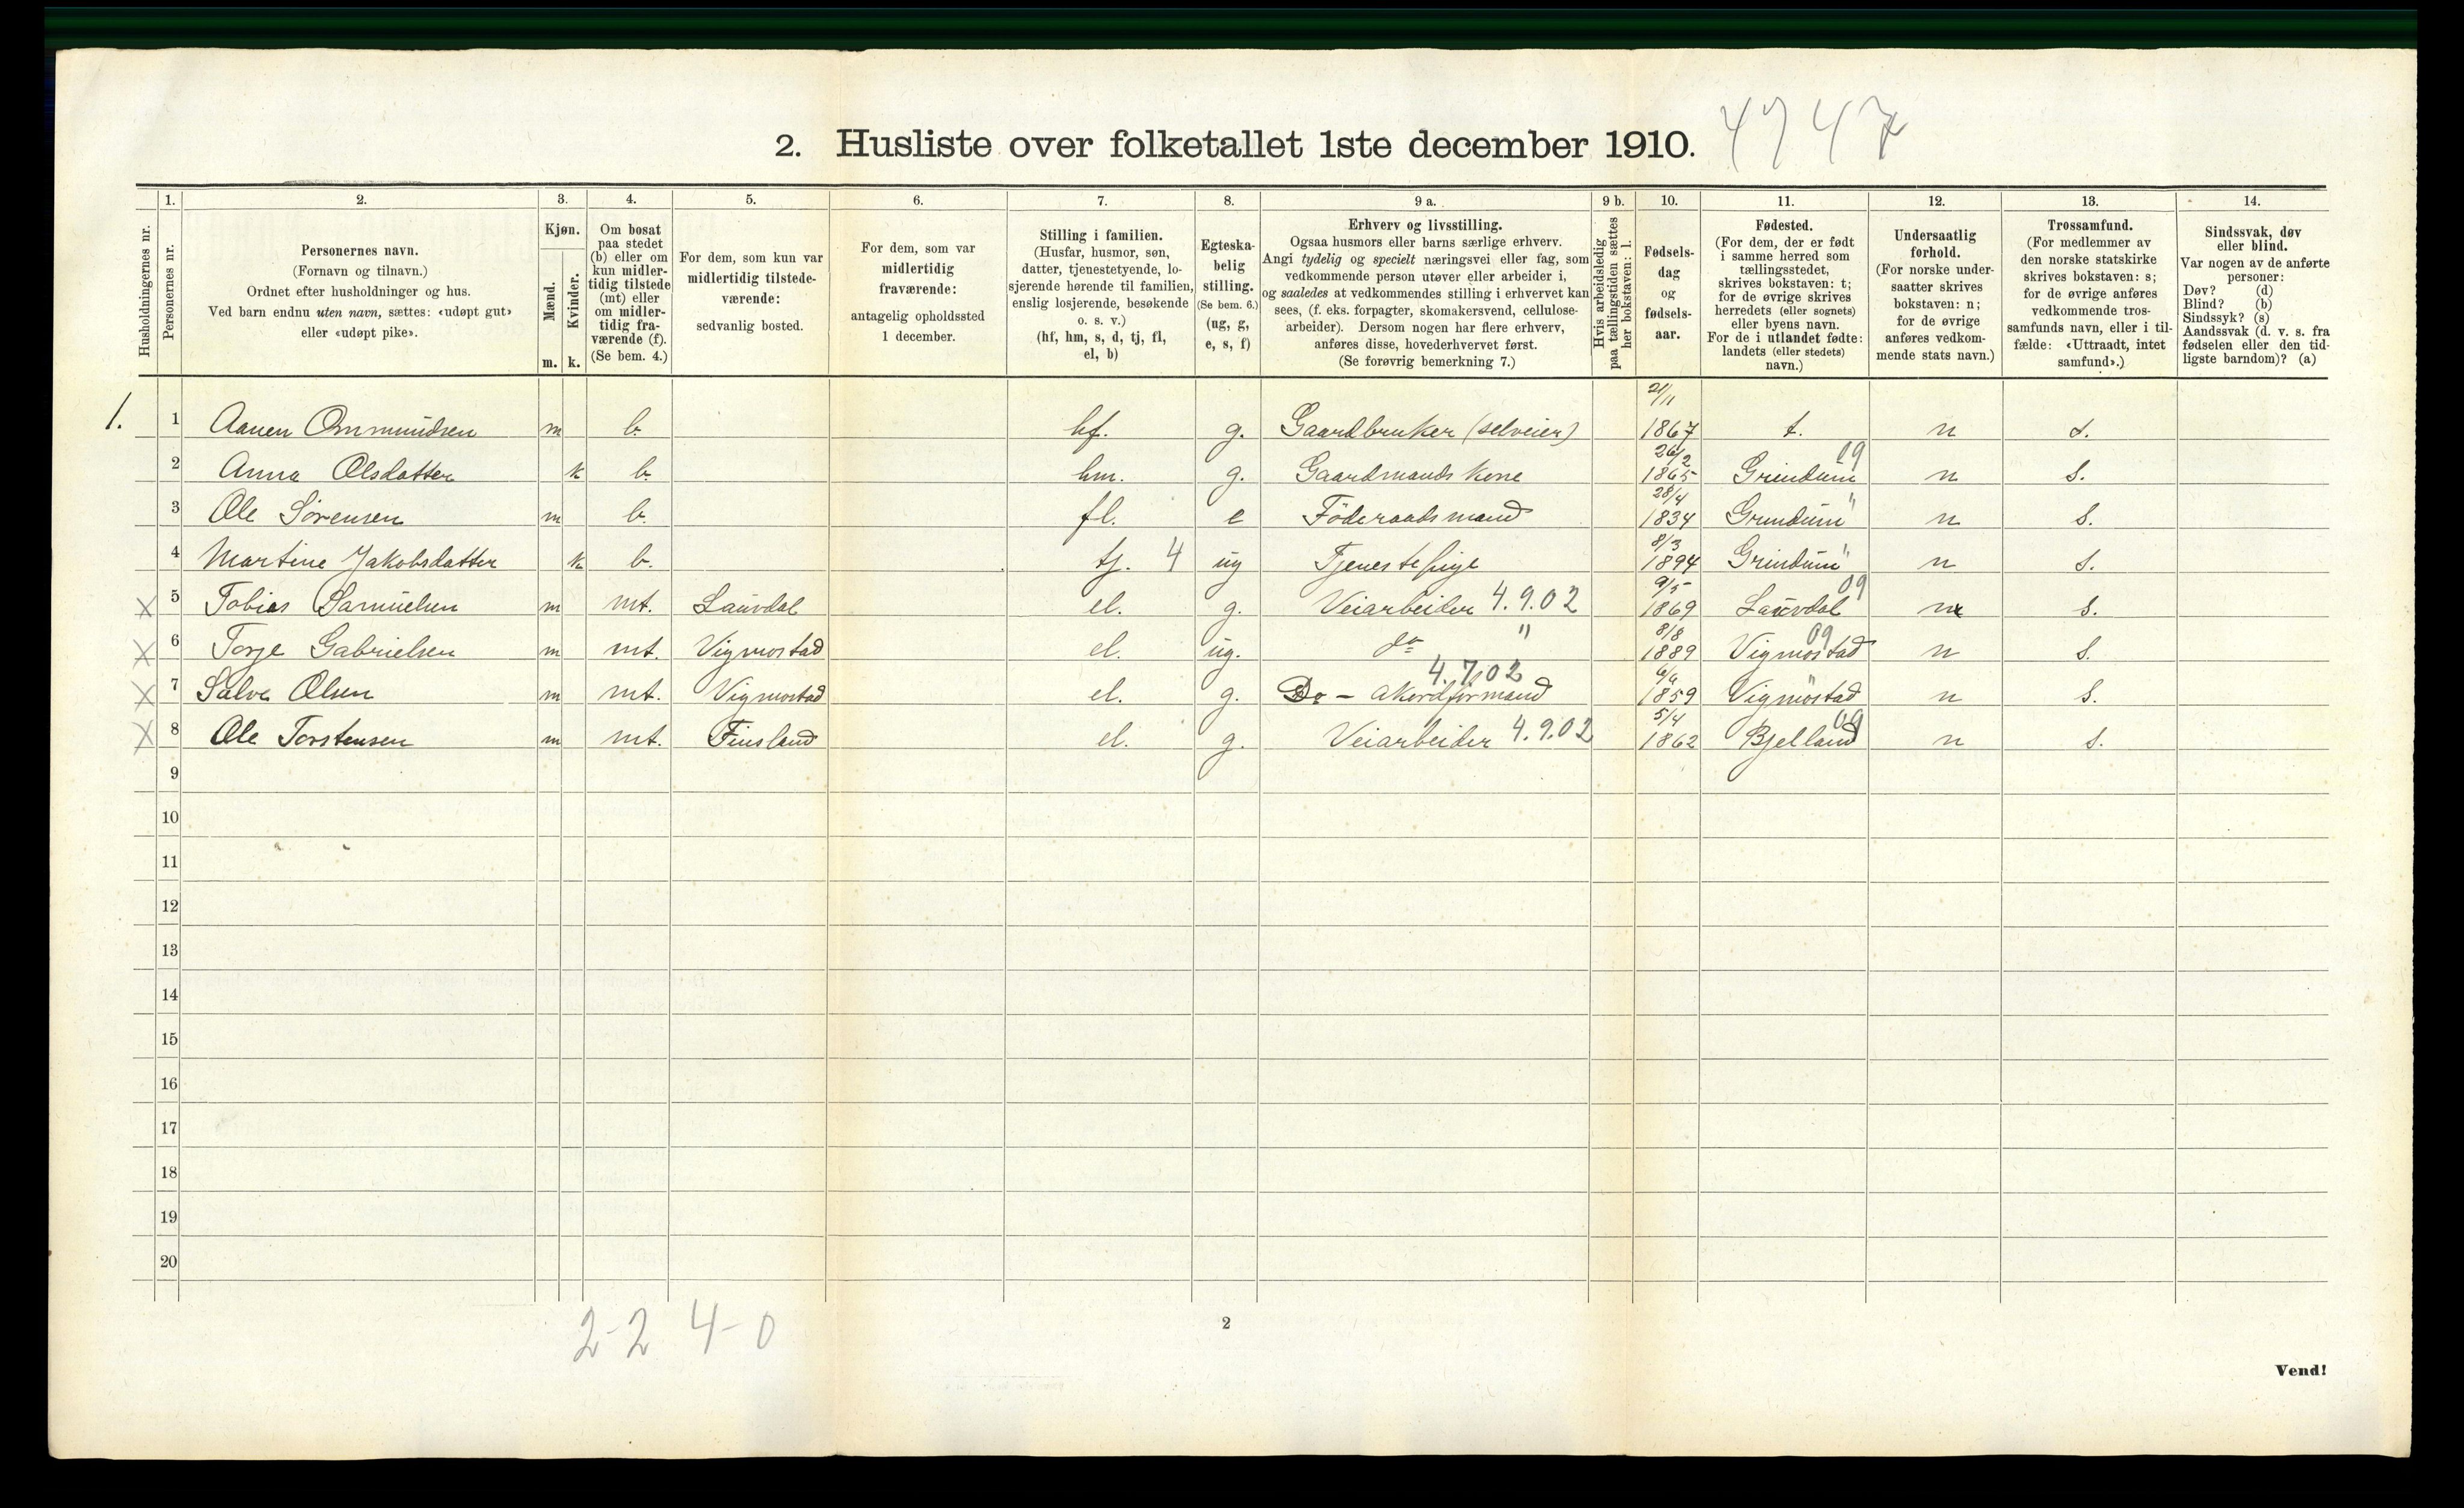 2. Husliste over folketallet 1ste december 1910. 4747
Husholdningernes nr.
1.
Personernes nr.
2.
Personernes navn.
(Fornavn og tilnavn.)
Ordnet efter husholdninger og hus.
Ved barn endnu uten navn, sættes: «udøpt gut»
eller «udøpt pike».
3.
Kjøn.
Mænd.
Kvinder.
m. k.
4.
Om bosat
paa stedet
(b) eller om
kun midler-
tidig tilstede
(mt) eller
om midler-
tidig fra-
værende (f).
(Se bem. 4.)
5.
For dem, som kun var
midlertidig tilstede-
værende:
sedvanlig bosted.
6.
For dem, som var
midlertidig
fraværende:
antagelig opholdssted
1 december.
7.
Stilling i familien.
(Husfar, husmor, søn,
datter, tjenestetyende, lo-
sjerende hørende til familien,
enslig losjerende, besøkende
o. s. v.)
(hf, hm, s, d, tj, fl,
el, b)
8.
Egteska-
belig
stilling.
(Se bem. 6.)
(ug, g,
e, s, f)
9 a.
Erhverv og livsstilling.
Ogsaa husmors eller barns særlige erhverv.
Angi tydelig og specielt næringsvei eller fag, som
vedkommende person utøver eller arbeider i,
og saaledes at vedkommendes stilling i erhvervet kan
sees, (f. eks. forpagter, skomakersvend, cellulose-
arbeider). Dersom nogen har flere erhverv,
anføres disse, hovederhvervet først.
(Se forøvrig bemerkning 7.)
9 b.
Hvis arbeidsledig
paa tællingstiden sættes
her bokstaven: l.
10.
Fødsels-
dag
og
fødsels-
aar.
11.
Fødested.
(For dem, der er født
i samme herred som
tællingsstedet,
skrives bokstaven: t;
for de øvrige skrives
herredets (eller sognets)
eller byens navn.
For de i utlandet fødte:
landets (eller stedets)
navn.)
12.
Undersaatlig
forhold.
(For norske under-
saatter skrives
bokstaven: n;
for de øvrige
anføres vedkom-
mende stats navn.)
13.
Trossamfund.
(For medlemmer av
den norske statskirke
skrives bokstaven: s;
for de øvrige anføres
vedkommende tros-
samfunds navn, eller i til-
fælde: «Uttraadt, intet
samfund».)
14.
Sindssvak, døv
eller blind.
Var nogen av de anførte
personer:
Døv? (d)
Blind? (b)
Sindssyk? (s)
Aandssvak (d. v. s. fra
fødselen eller den tid-
ligste barndom)? (a)
1. 1 Aanen Ommundsen m b. hf. g. Gaardbruker (selveier) 21/11 1867 t. n s.
2 Anna Olsdatter k b. hm. g. Gaardmands kone 26/2 1865 Grindum 09 n s.
3 Ole Sørensen m b. fl. e Föderaadsmand 28/4 1834 Grindum " n s.
4 Martine Jakobsdatter k b. tj. 4 ug Tjenestepige 8/3 1894 Grindum " n s.
x 5 Tobias Samuelsen m mt. Lauvdal el. g. Veiarbeider 4.9.02 9/5 1869 Lauvdal 09 n s.
x 6 Torje Gabrielsen m mt. Vigmostad el. ug. do " 8/8 1889 Vigmostad 09 n s.
x 7 Salve Olsen m mt. Vigmostad el. g. Do - akordformand 4.7.02 1859 Vigmostad " n s.
x 8 Ole Torstensen m mt. Finsland el. g. Veiarbeider 4.9.02 5/4 1862 Bjelland 09 n s.
9
10
11
12
13
14
15
16
17
18
19
20
2-2 4-0
2
Vend!